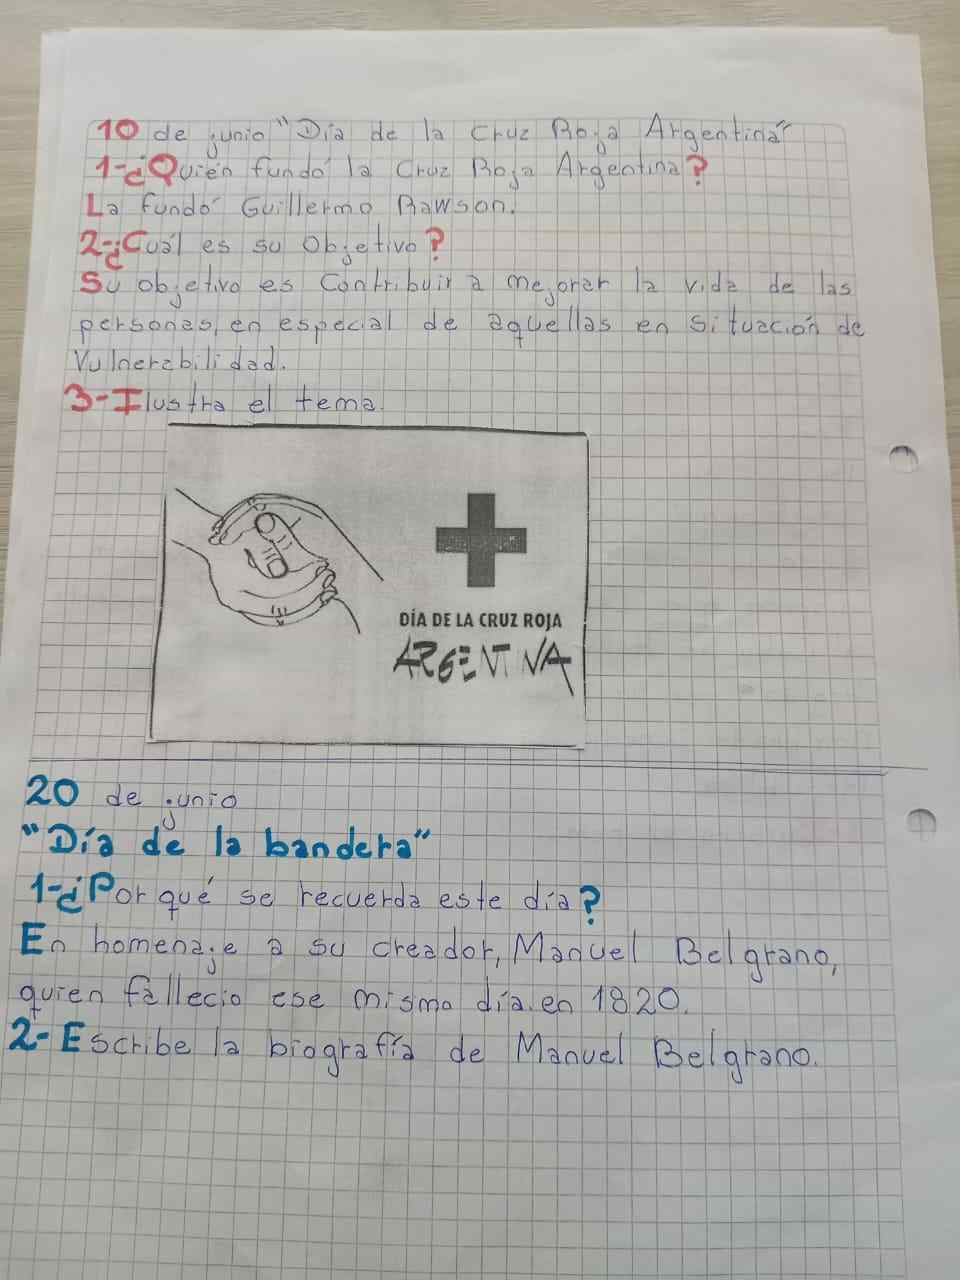 10 de junio "Día de la Cruz Roja Argentina"
1-¿Quién fundó la Cruz Roja Argentina?
La fundó Guillermo Rawson.
2-¿Cuál es su Objetivo?
Su objetivo es Contribuir a mejorar la vida de las
personas, en especial de aquellas en situación de
Vulnerabilidad.
3-Ilustra el tema.
DÍA DE LA CRUZ ROJA
ARGENTINA
20 de junio
"Día de la bandera"
1-¿Por qué se recuerda este día?
En homenaje a su creador, Manuel Belgrano,
quien fallecio ese mismo día en 1820.
2-Escribe la biografía de Manuel Belgrano.